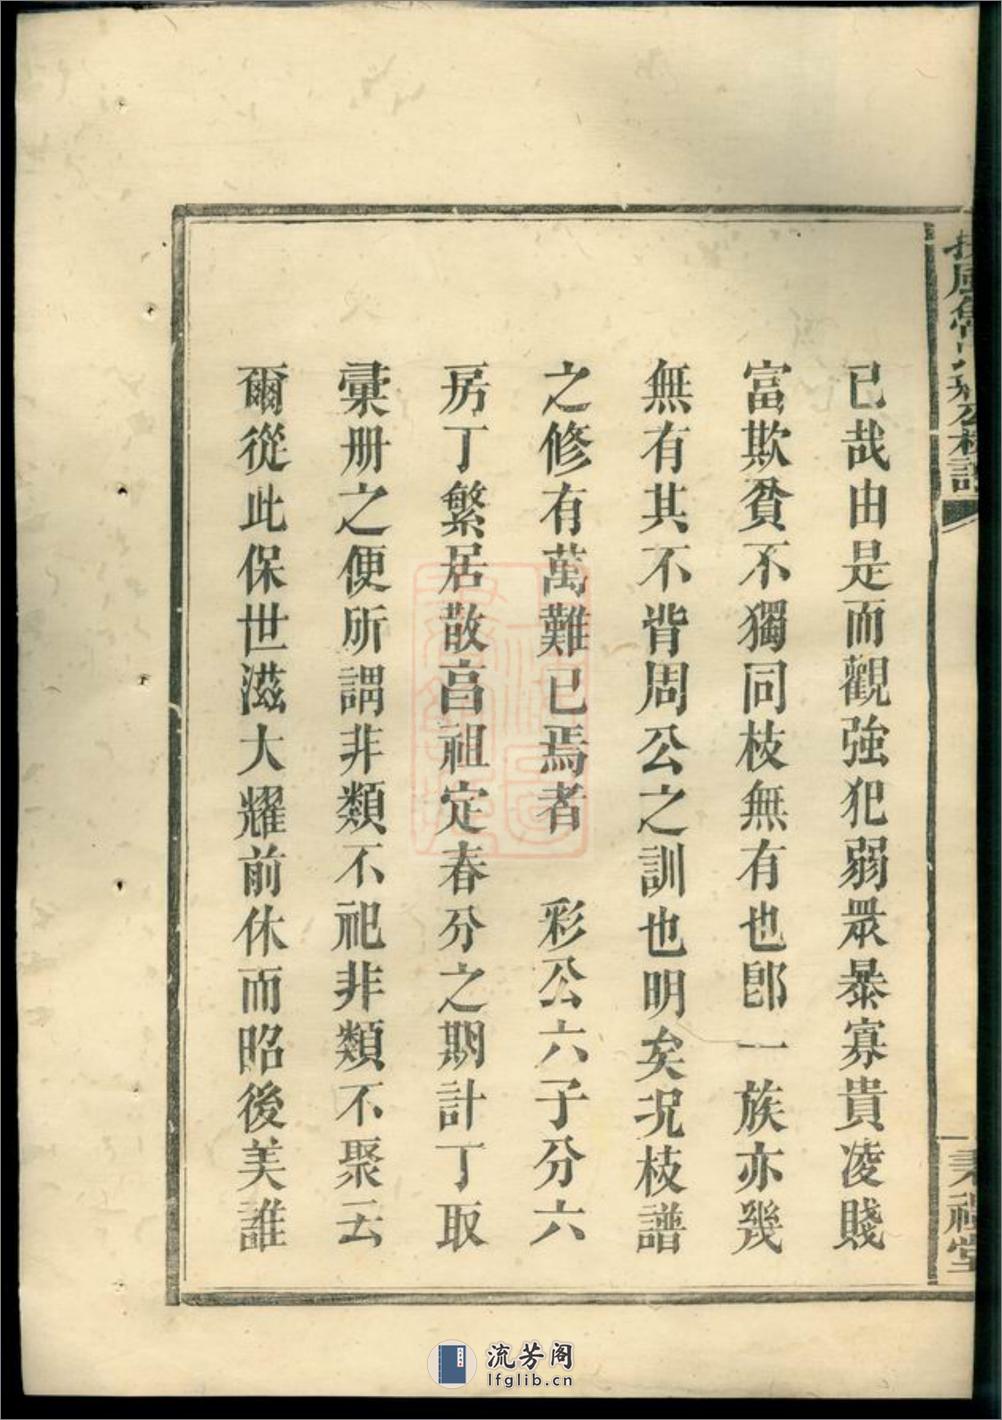 已哉由是而觀強犯弱眾暴寡貴凌賤
富欺貧不獨同枝無有也卽一族亦幾
無有其不背周公之訓也明矣况枝譜
之修有萬難已焉者　彩公六子分六
房丁繁居散啇祖定春分之期計丁取
彚册之便所謂非類不祀非類不聚云
爾從此保世滋大耀前休而昭後美誰
風魯公枝譜
秉禮堂
流芳阁
lfglib.cn